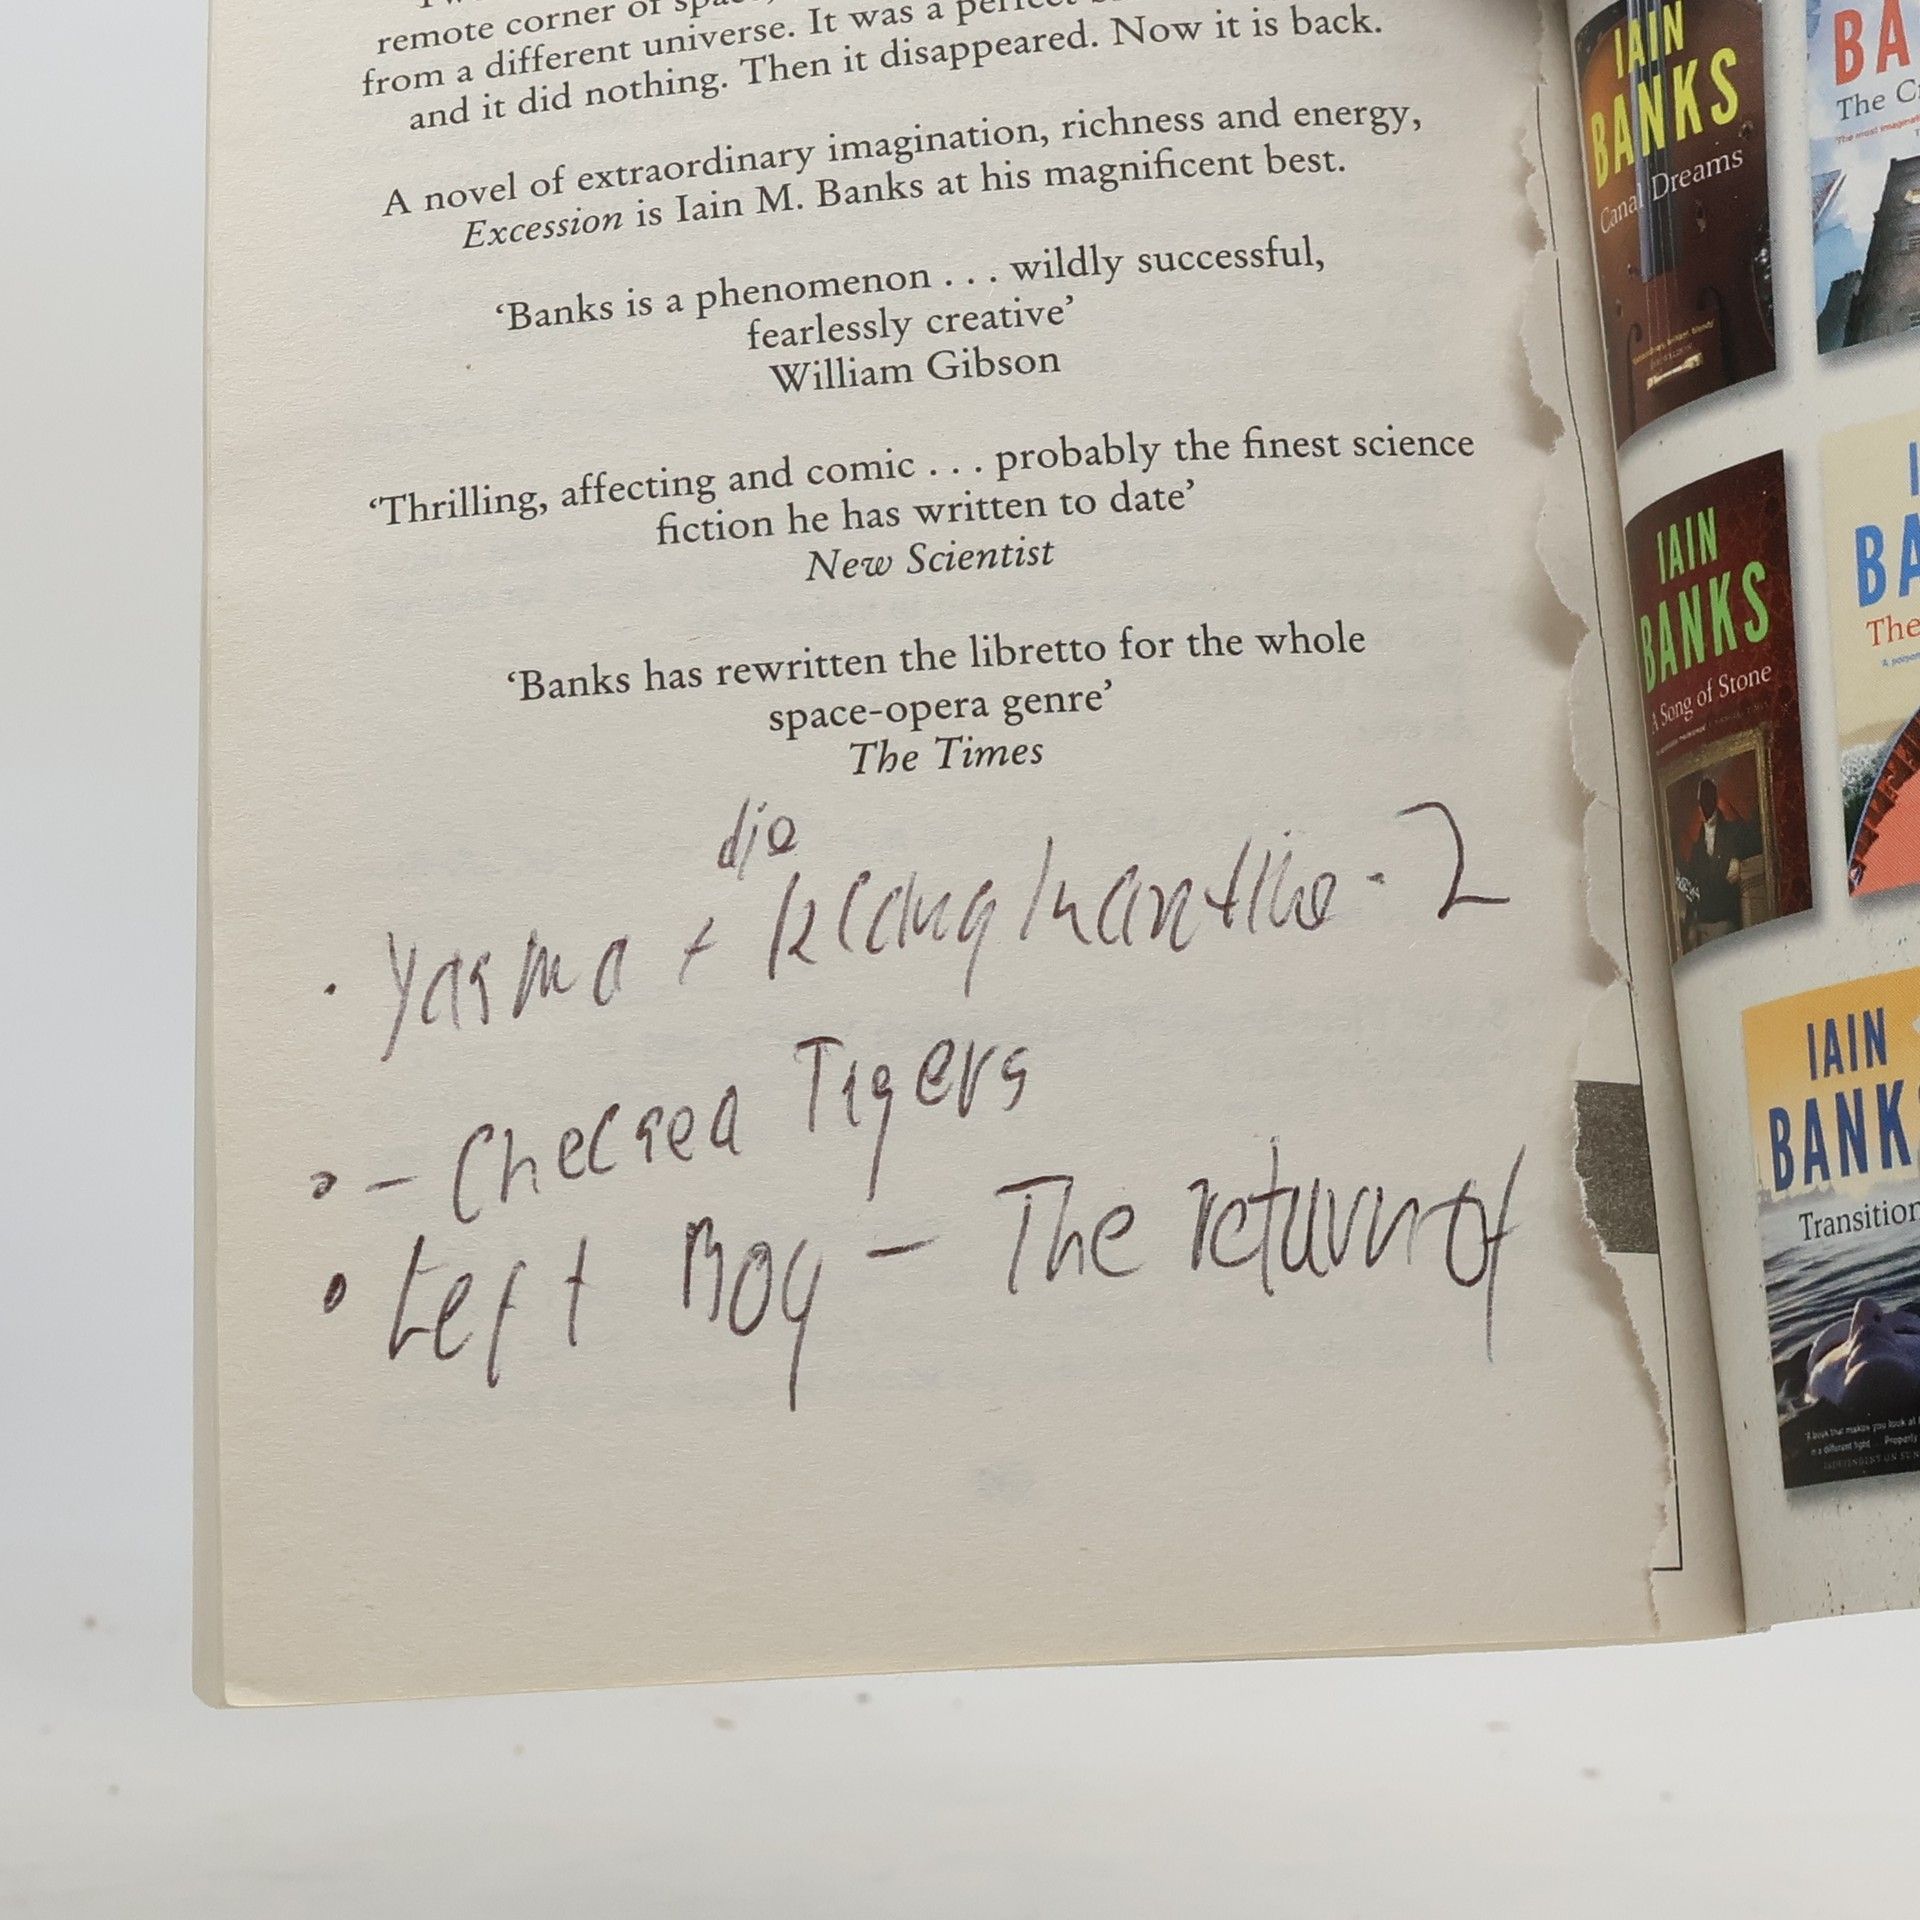 remote corner of space,
from a different universe. It was a perfect
and it did nothing. Then it disappeared. Now it is back.
A novel of extraordinary imagination, richness and energy,
Excession is Iain M. Banks at his magnificent best.
‘Banks is a phenomenon . . . wildly successful,
fearlessly creative’
William Gibson
‘Thrilling, affecting and comic . . . probably the finest science
fiction he has written to date’
New Scientist
‘Banks has rewritten the libretto for the whole
space-opera genre’
The Times
die
• Yasmo + Klangkantine - 2
• - Chelsea Tigers
• Left Boy - The return of
IAIN
BANKS
Canal Dreams
BA
The C
IAIN
BANKS
A Song of Stone
BA
The
IAIN
BANKS
Transition